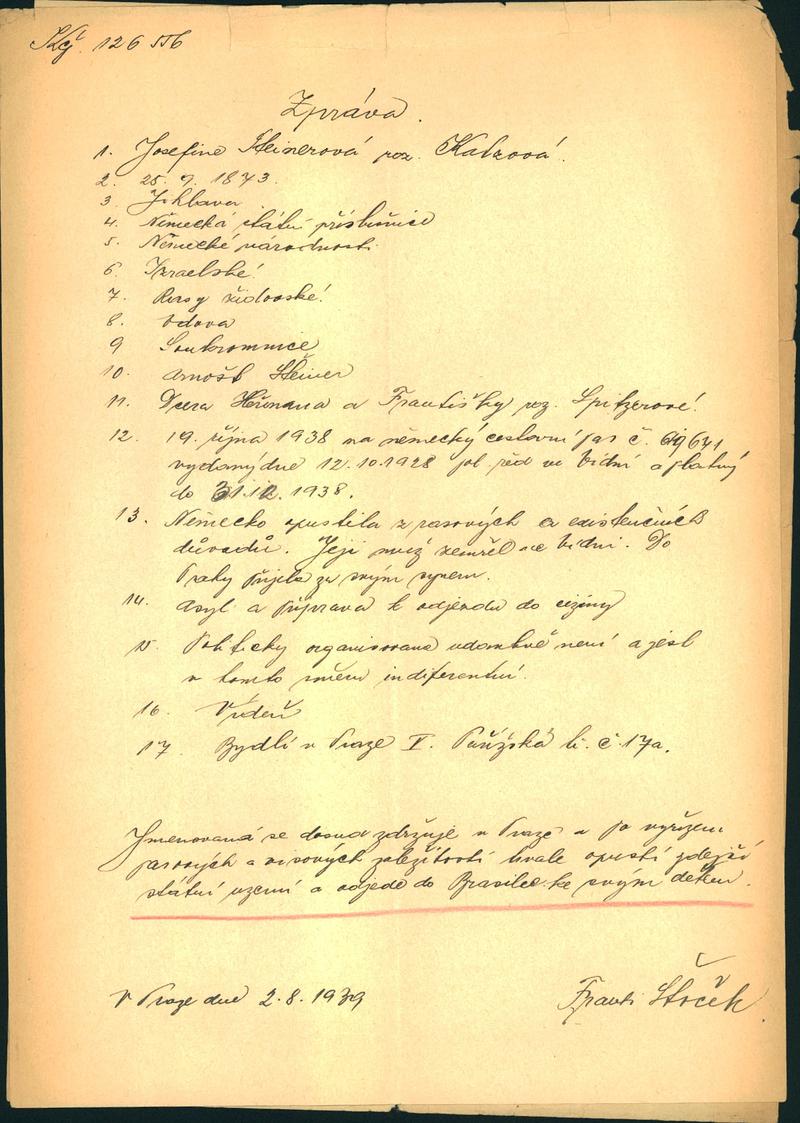 126556
Zpráva.
1. Josefine Steinerová roz. Katzová.
2. 25.9. 1873.
3. Jihlava
4. Německá státní příslušnice
5. Německé národnosti.
6. Israelské.
7. Rasy židovské.
8. Vdova
9 Soukromnice
10. Arnošt Steiner
11. Dcera Heřmana a Františky roz. Spitzerové.
12. 19. října 1938 na německý cestovní pas č.
vydaný dne 12.10.1928 pol. řed ve Vídni a platný
do 31.12.1938.
13. Německo opustila z rasových a existenčních
důvodů. Její muž zemřel ve Vídni. Do
Prahy přijela za svým synem.
14. Asyl a příprava k odjezdu do ciziny
15 Politicky organisovaná není a jest
v tomto směru indiferentní.
16. Vídeň
17. Bydlí v Praze V. Pařížská tř. č. 17a.
Jmenovaná se dosud zdržuje v Praze a po vyřízení
pasových a visových záležitostí trvale opustí zdejší
státní území a odjede do Brasilie ke svým dětem.
V Praze dne 2.8.1939